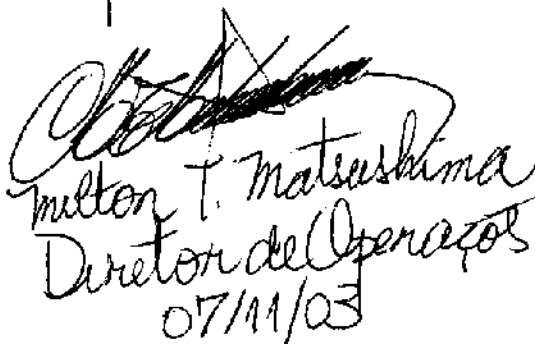 Milton T. Matsushima
Diretor de Operaços
07/11/03